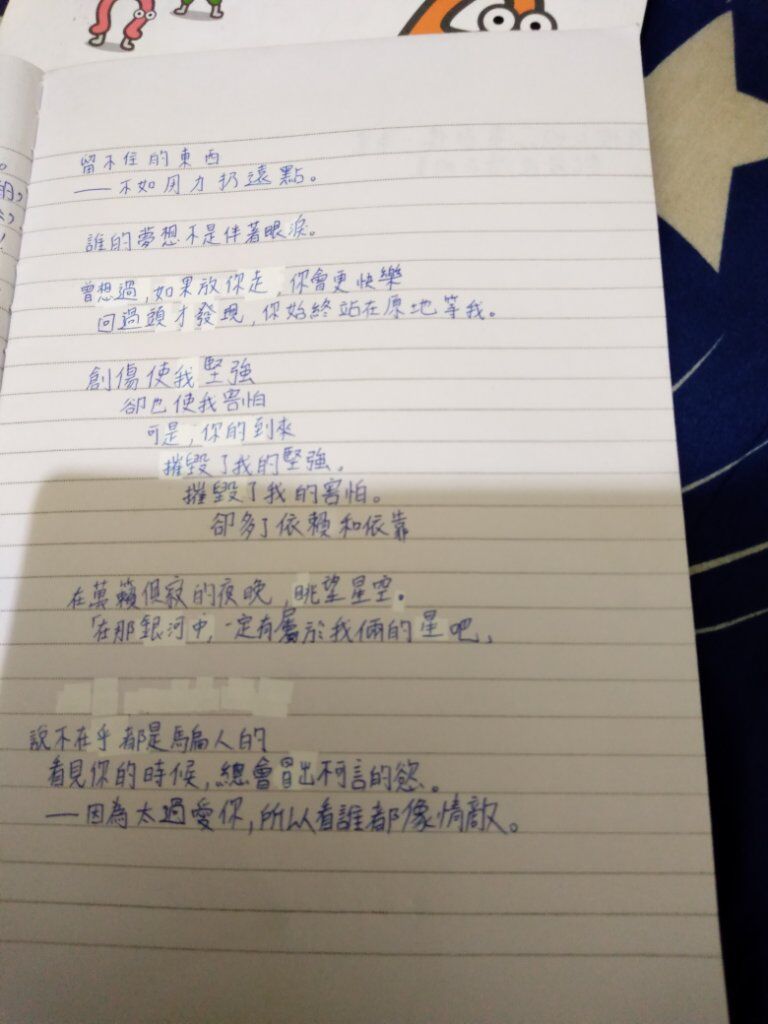 留不住的東西
——不如用力扔遠點。
誰的夢想不是伴著眼淚。
曾想過,如果放你走,你會更快樂
回過頭才發現,你始終站在原地等我。
創傷使我堅強
卻也使我害怕
可是,你的到來
摧毀了我的堅強。
摧毀了我的害怕。
卻多了依賴和依靠
在萬籟俱寂的夜晚,眺望星空。
「在那銀河中,一定有屬於我倆的星吧」
說不在乎都是騙人的
看見你的時候,總會冒出不可言的慾。
——因為太過愛你,所以看誰都像情敵。